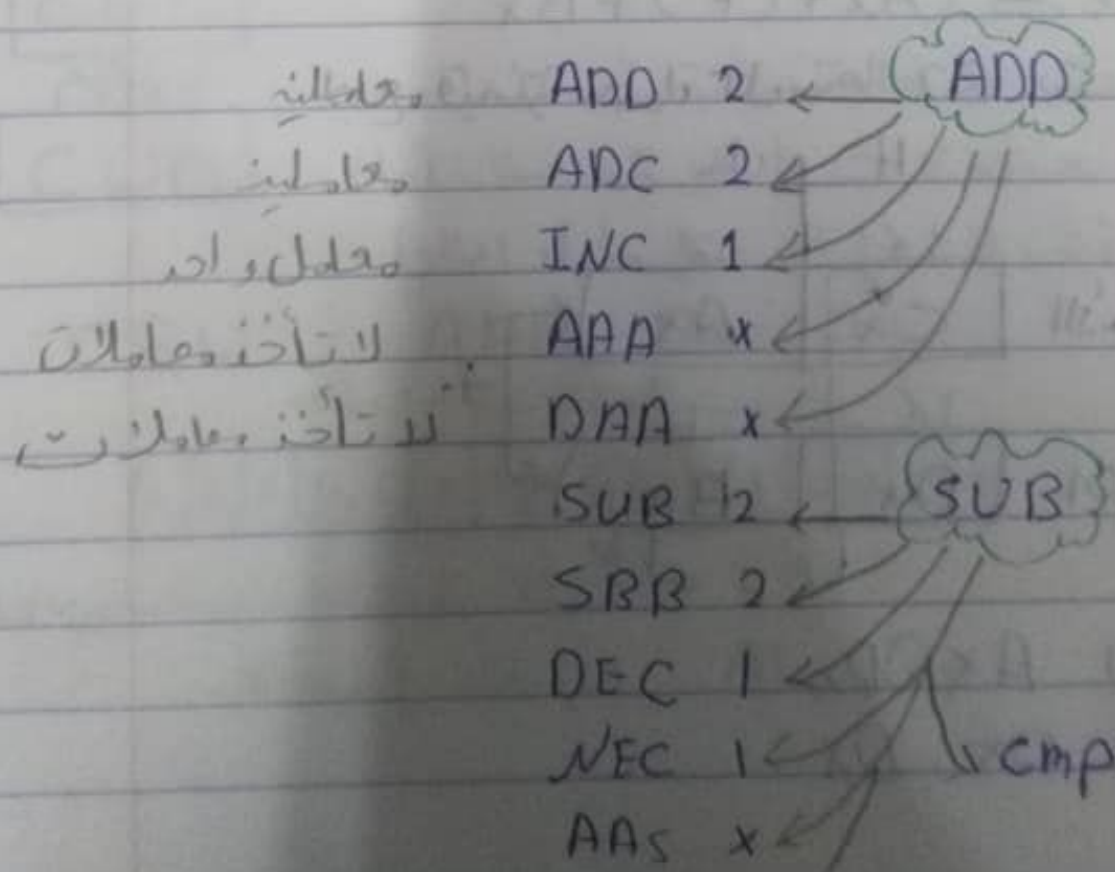 ADD
ADD 2 معاملين
ADC 2 معاملين
INC 1 معامل واحد
AAA x لا تأخذ معاملات
DAA x لا تأخذ معاملات
SUB
SUB 2
SBB 2
DEC 1
NEC 1
cmp
AAS x